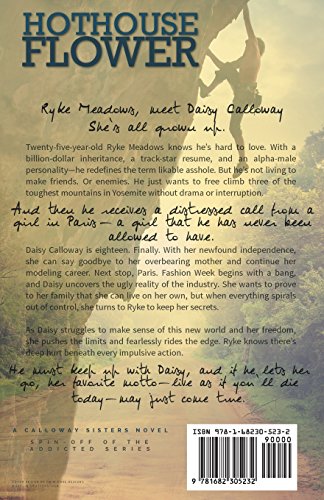 HOTHOUSE
FLOWER
Ryke Meadows, meet Daisy Calloway
She's all grown up.
Twenty-five-year-old Ryke Meadows knows he's hard to love. With a
billion-dollar inheritance, a track-star resume, and an alpha-male
personality—he redefines the term likable asshole. But he's not living
to make friends. Or enemies. He just wants to free climb three of the
toughest mountains in Yosemite without drama or interruption.
And then he receives a distressed call from a
girl in Paris—a girl that he has never been
allowed to have.
Daisy Calloway is eighteen. Finally. With her newfound independence,
she can say goodbye to her overbearing mother and continue her
modeling career. Next stop, Paris. Fashion Week begins with a bang,
and Daisy uncovers the ugly reality of the industry. She wants to prove
to her family that she can live on her own, but when everything spirals
out of control, she turns to Ryke to keep her secrets.
As Daisy struggles to make sense of this new world and her freedom,
she pushes the limits and fearlessly rides the edge. Ryke knows there's
deep hurt beneath every impulsive action.
He must keep up with Daisy, and if he lets her
go, her favorite motto—live as if you'll die
today—may just come true.
A CALLOWAY SISTERS NOVEL
SPIN-OFF OF THE
ADDICTED SERIES
ISBN 978-1-68230-523-2
90000
9 781682 305232